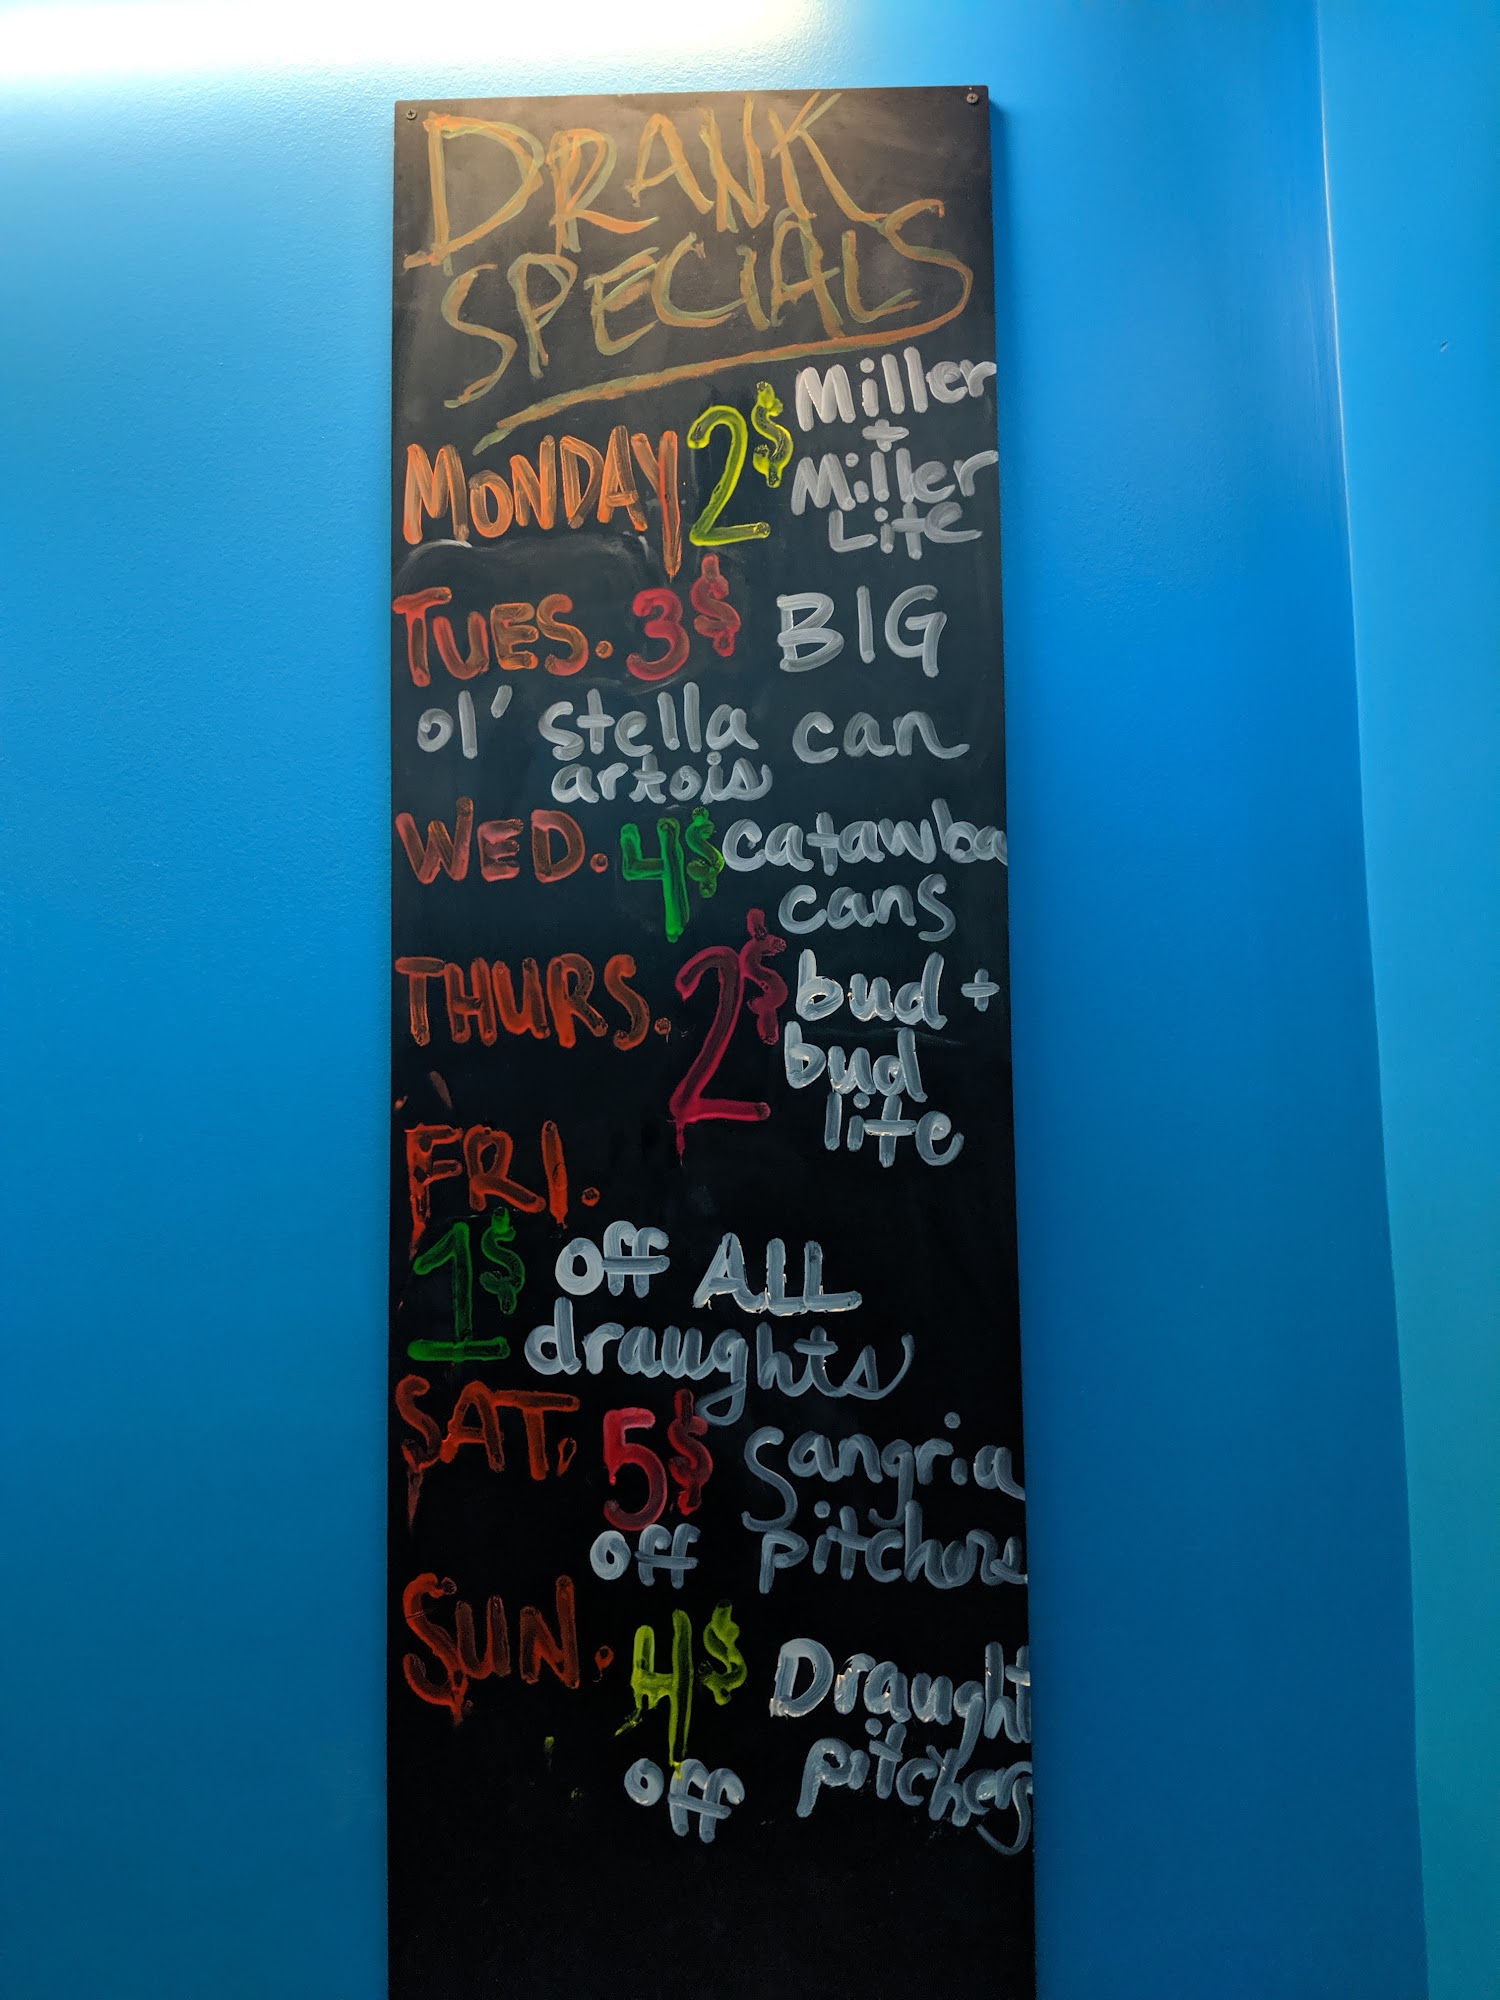 DRANK
SPECIALS
MONDAY 2$ Miller
+
Miller
Lite
TUES. 3$ BIG
ol' stella can
artois
WED. 4$ catawba
cans
THURS. 2$ bud +
bud
lite
FRI.
1$ off ALL
draughts
SAT. 5$ Sangria
off pitchers
SUN. 4$ Draught
off pitchers